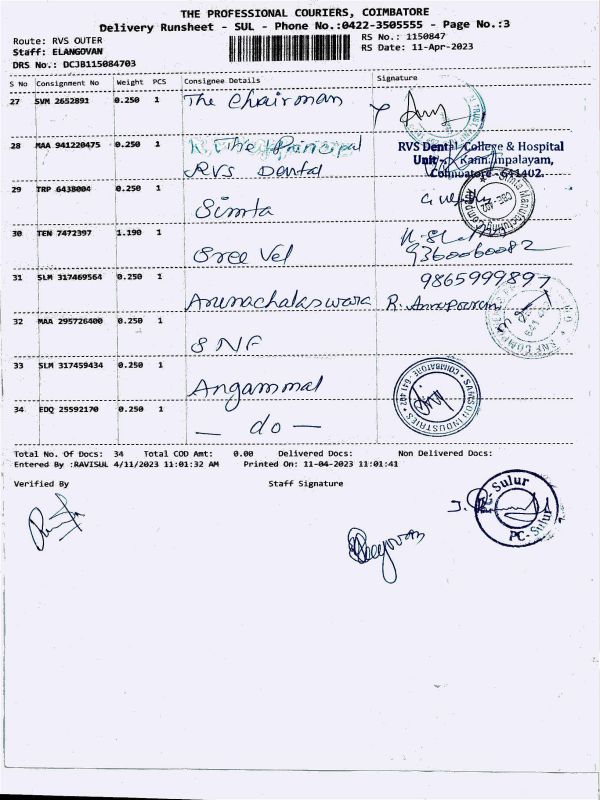 THE PROFESSIONAL COURIERS, COIMBATORE
Delivery Runsheet - SUL - Phone No.:0422-3505555 - Page No.:3
Route: RVS OUTER
RS No.: 1150847
Staff: ELANGOVAN
RS Date: 11-Apr-2023
DRS No.: DCJB115084703
S No Consignment No Weight PCS Consignee Details Signature
27 SVM 2652891 0.250 1 The Chairman
28 MAA 941220475 0.250 1 The Principal
RVS Dental
RVS Dental College & Hospital
Kannampalayam,
Coimbatore - 641402.
29 TRP 6438004 0.250 1
Simta
30 TEN 7472397 1.190 1
Sree Vel
9360060082
31 SLM 317469564 0.250 1 9865999897
Arunachalaswara R. Annapoorani
32 MAA 295726400 0.250 1
SNF
33 SLM 317459434 0.250 1
Angammal
SAMSON INDUSTRIES
COIMBATORE 641 402
34 EDQ 25592170 0.250 1
— do —
Total No. Of Docs: 34 Total COD Amt: 0.00 Delivered Docs: Non Delivered Docs:
Entered By :RAVISUL 4/11/2023 11:01:32 AM Printed On: 11-04-2023 11:01:41
Verified By Staff Signature
PC-Sulur
PC-Sulur